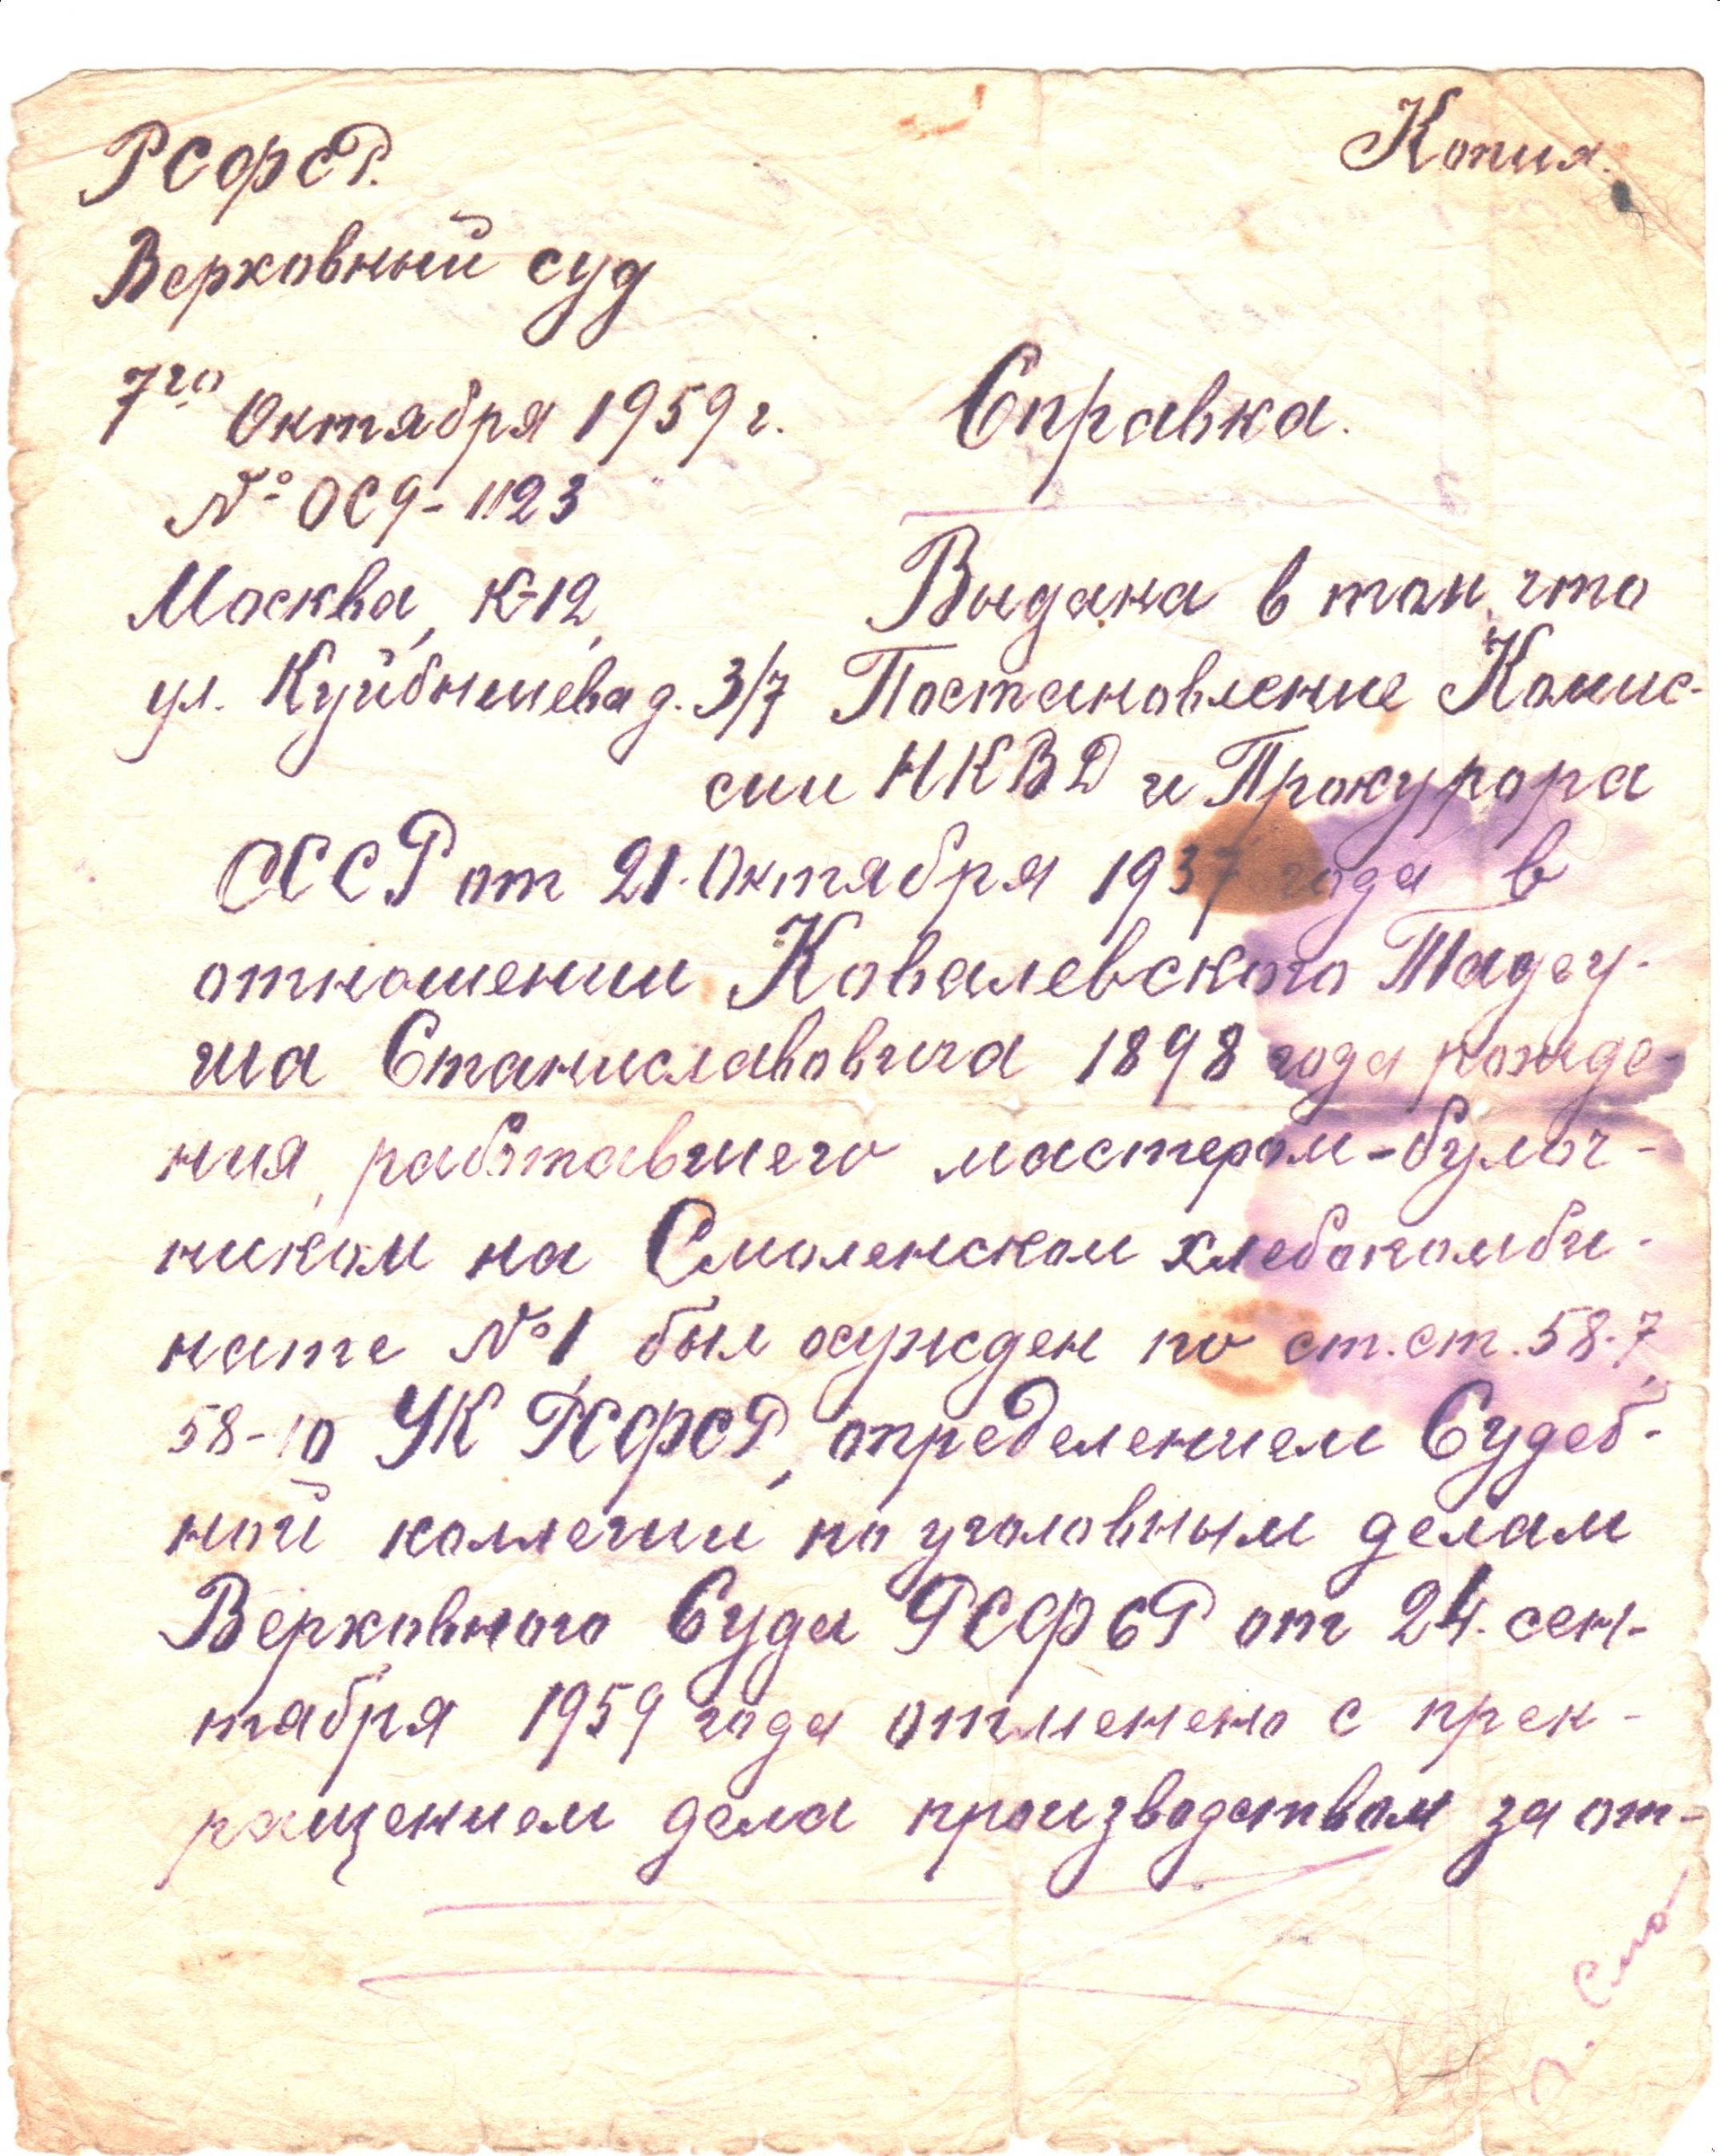 Копия.
РСФСР.
Верховный суд
7го Октября 1959 г.
Справка.
№ ОС9-1123
Москва, К-12,
ул. Куйбышева д. 3/7
Выдана в том, что
Постановление Комис-
сии НКВД и Прокурора
СССР от 21. Октября 1937 года в
отношении Ковалевского Тадеу-
ша Станиславовича 1898 года рожде-
ния, работавшего мастером-булоч-
ником на Смоленском хлебокомби-
нате №1, был осужден по ст.ст. 58-7,
58-10 УК РСФСР, определением Судеб-
ной коллегии по уголовным делам
Верховного Суда РСФСР от 24. сен-
тября 1959 года отменено с прек-
ращением дела производством за от-
г. Смо